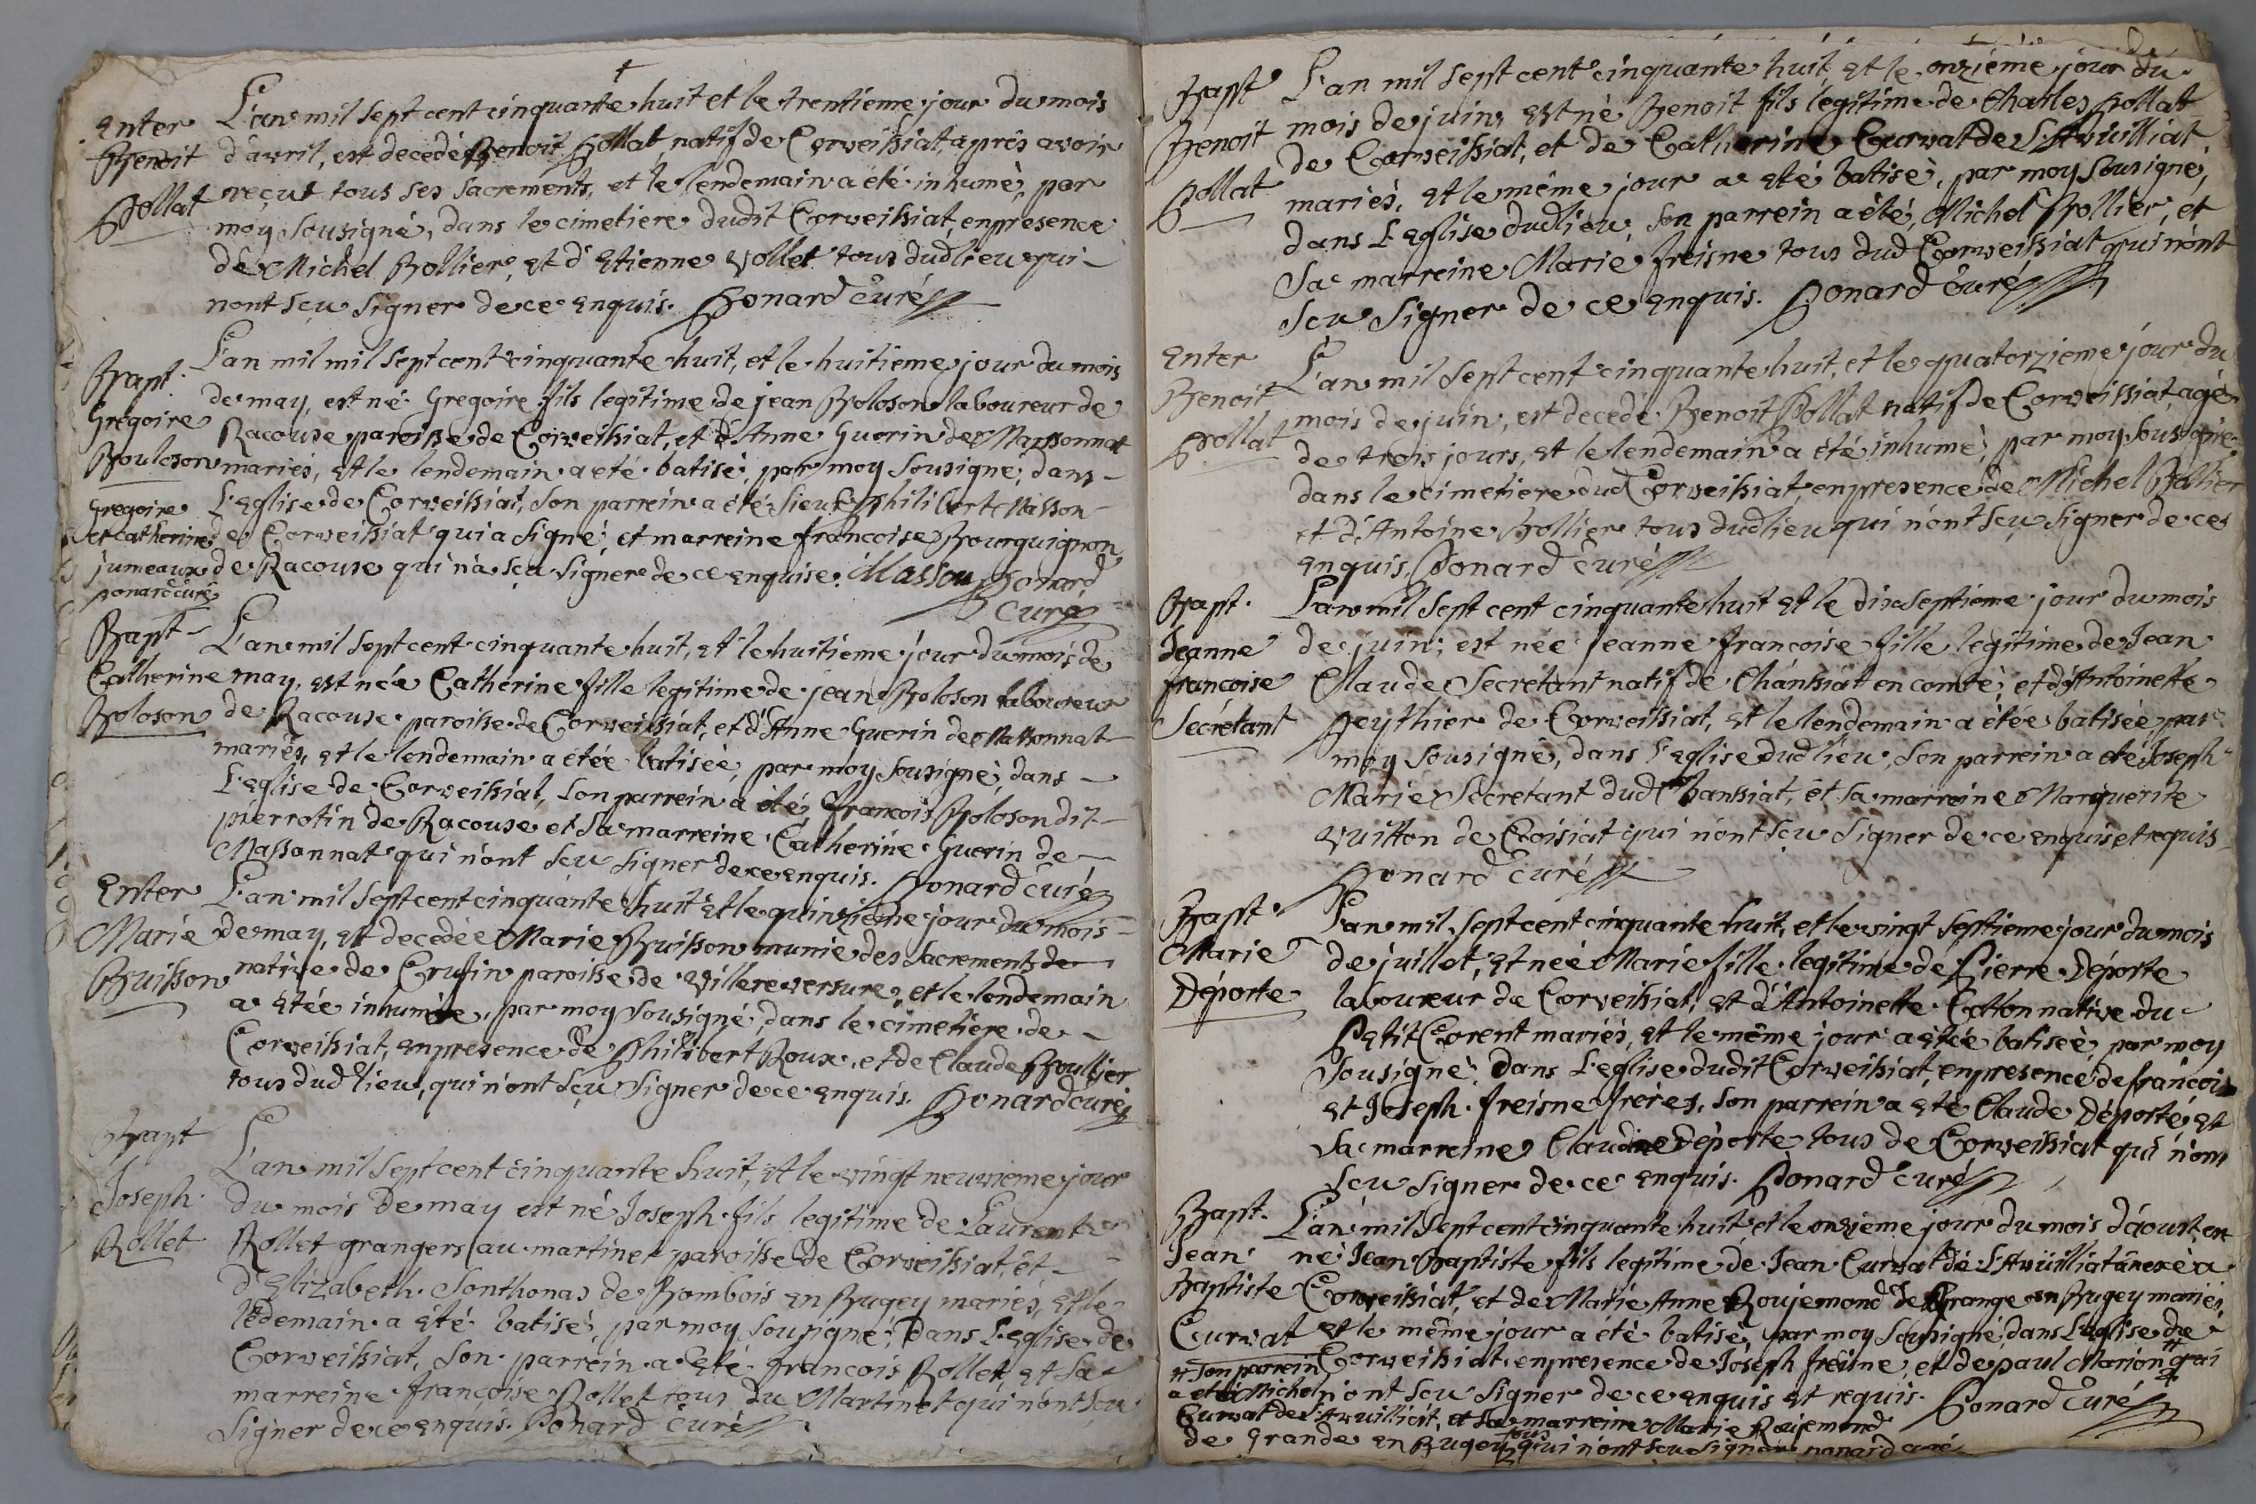 Enter
Benoit
Pollat
L'an mil sept cent cinquante huit et le trentieme jour du mois
d'avril, est decedé Benoit Pollat natif de Corveissiat, aprés avoir
reçut tous ses sacrements, et le lendemain a été inhumé, par
moy sousigné, dans le cimetiere dudit Corveissiat, en presence
de Michel Bollier, et d'Etienne Vollet tous dud lieu qui
nont scu signer de ce enquis. Ponard curé
Bapt.
Gregoire
Bouloson
Gregoire
et Catherine
jumeaux
ponard curé
L'an mil mil sept cent cinquante huit, et le huitieme jour du mois
de may, est né Gregoire fils legitime de jean Boloson laboureur de
Racouse paroisse de Corveissiat, et d'Anne Guerin de Massonnat
mariés, et le lendemain a eté batisé, par moy sousigné, dans
l'Eglise de Corveissiat, son parrein a été sieur Philibert Masson
de Corveissiat qui a signé, et marreine francoise Bourguignon
de Racouse qui n'a sçu signer de ce enquise. Masson Ponard
Curé
Bapt
Catherine
Boloson
L'an mil sept cent cinquante huit, et le huitieme jour du mois de
may, est née Catherine fille legitime de jean Boloson laboureur
de Racouse paroisse de Corveissiat, et d'Anne Guerin de Massonnat
mariés, et le lendemain a etée batisée, par moy sousigné, dans
l'Eglise de Corveissiat, son parrein a été, francois Boloson dit
pierrotin de Racouse et sa marreine Catherine Guerin de
Massonnat qui n'ont scu signer de ce enquis. Ponard curé
Enter
Marie
Buisson
L'an mil sept cent cinquante huit et le quinzieme jour du mois
de may, est decedée Marie Buisson munie des sacrements de
native de Crusin paroisse de Villereversure, et le lendemain
a etée inhumée, par moy sousigné, dans le cimetiere de
Corveissiat, en presence de Philibert Roux, et de Claude Boullier
tous dud lieu, qui n'ont sçu signer de ce enquis. Ponard curé
Bapt
Joseph
Rollet
L'an mil sept cent cinquante huit, et le vingt neuvieme jour
du mois de may est né Joseph fils legitime de Laurent
Rollet grangers au martinet paroisse de Corveissiat, et
d'Elizabeth Sonthonas de Bombois en Bugey mariés, et le
ledemain a eté batisé, par moy sousigné, dans l'Eglise de
Corveissiat, son parrein a eté francois Rollet, et sa
marreine françoise Rollet tous du Martinet qui n'ont scu
signer de ce enquis. Ponard curé
Bapt
Benoit
Pollat
L'an mil sept cent cinquante huit, et le onzieme jour du
mois de juin, est né Benoit fils legitime de Charles Pollat
de Corveissiat, et de Catherine Curvat de St Avuilliat
mariés, et le même jour a eté batisé, par moy sousigné,
dans l'Eglise dudlieu, son parrein a été, Michel Bollier, et
sa marreine Marie freisne tous dud Corveissiat qui n'ont
scu signer de ce enquis. Ponard curé
Enter
Benoit
Pollat
L'an mil sept cent cinquante huit, et le quatorzieme jour du
mois de juin, est decedé Benoit Pollat natif de Corveissiat agé
de trois jours, et le lendemain a été inhumé, par moy sousigné
dans le cimetiere dud Corveissiat, en presence de Michel Bolier
et d'Antoine Bollier tous dudlieu qui n'ont sçu signer de ce
enquis, Ponard curé
Bapt.
Jeanne
francoise
Secretant
L'an mil sept cent cinquante huit et le dixseptieme jour du mois
de juin, est née Jeanne francoise fille legitime de Jean
Claude Secretant natif de Chanssiat en comté, et d'Antoinette
Peythier de Corveissiat, et le lendemain a étée batisée, par
moy sousigné, dans l'Eglise dudlieu, son parrein a eté Joseph
Marie Secretant dud Chanssiat, et sa marreine Marguerite
Vuitton de Coisiat qui n'ont sçu signer de ce enquis et requis
Ponard curé
Bapt
Marie
Déporte
L'an mil sept cent cinquante huit, et le vingt septieme jour du mois
de juillet, est née Marie fille legitime de Pierre Déporte
laboureur de Corveissiat, et d'Antoinette Cotton native du
Petit Corent mariés, et le même jour a etée batisée par moy
sousigné, dans l'eglise dudit Corveissiat, en presence de francois
et Joseph freisne freres, son parrein a eté Claude Déporte, et
sa marreine Claudine Déporte tous de Corveissiat qui n'ont
scu signer de ce enquis. Ponard curé
Bapt.
Jean
Baptiste
Curvat
L'an mil sept cent cinquante huit et le onzieme jour du mois d'aoust, est
né Jean Baptiste fils legitime de Jean Curvat de St Avuilliat anexe a
Corveissiat, et de Marie Anne Roujemond de Grange en Bugey mariés,
et le même jour a été batisé, par moy sousigné dans l'eglise de
Corveissiat, en presence de Joseph freisne, et de paul Marion # qui
n'ont scu signer de ce enquis et requis. Ponard curé
# son parrein
a eté Michel
Curvat de St Avuilliat, et sa marreine Marie Roujemond
de Grande en Bugey tous qui n'ont scu signer ponard curé